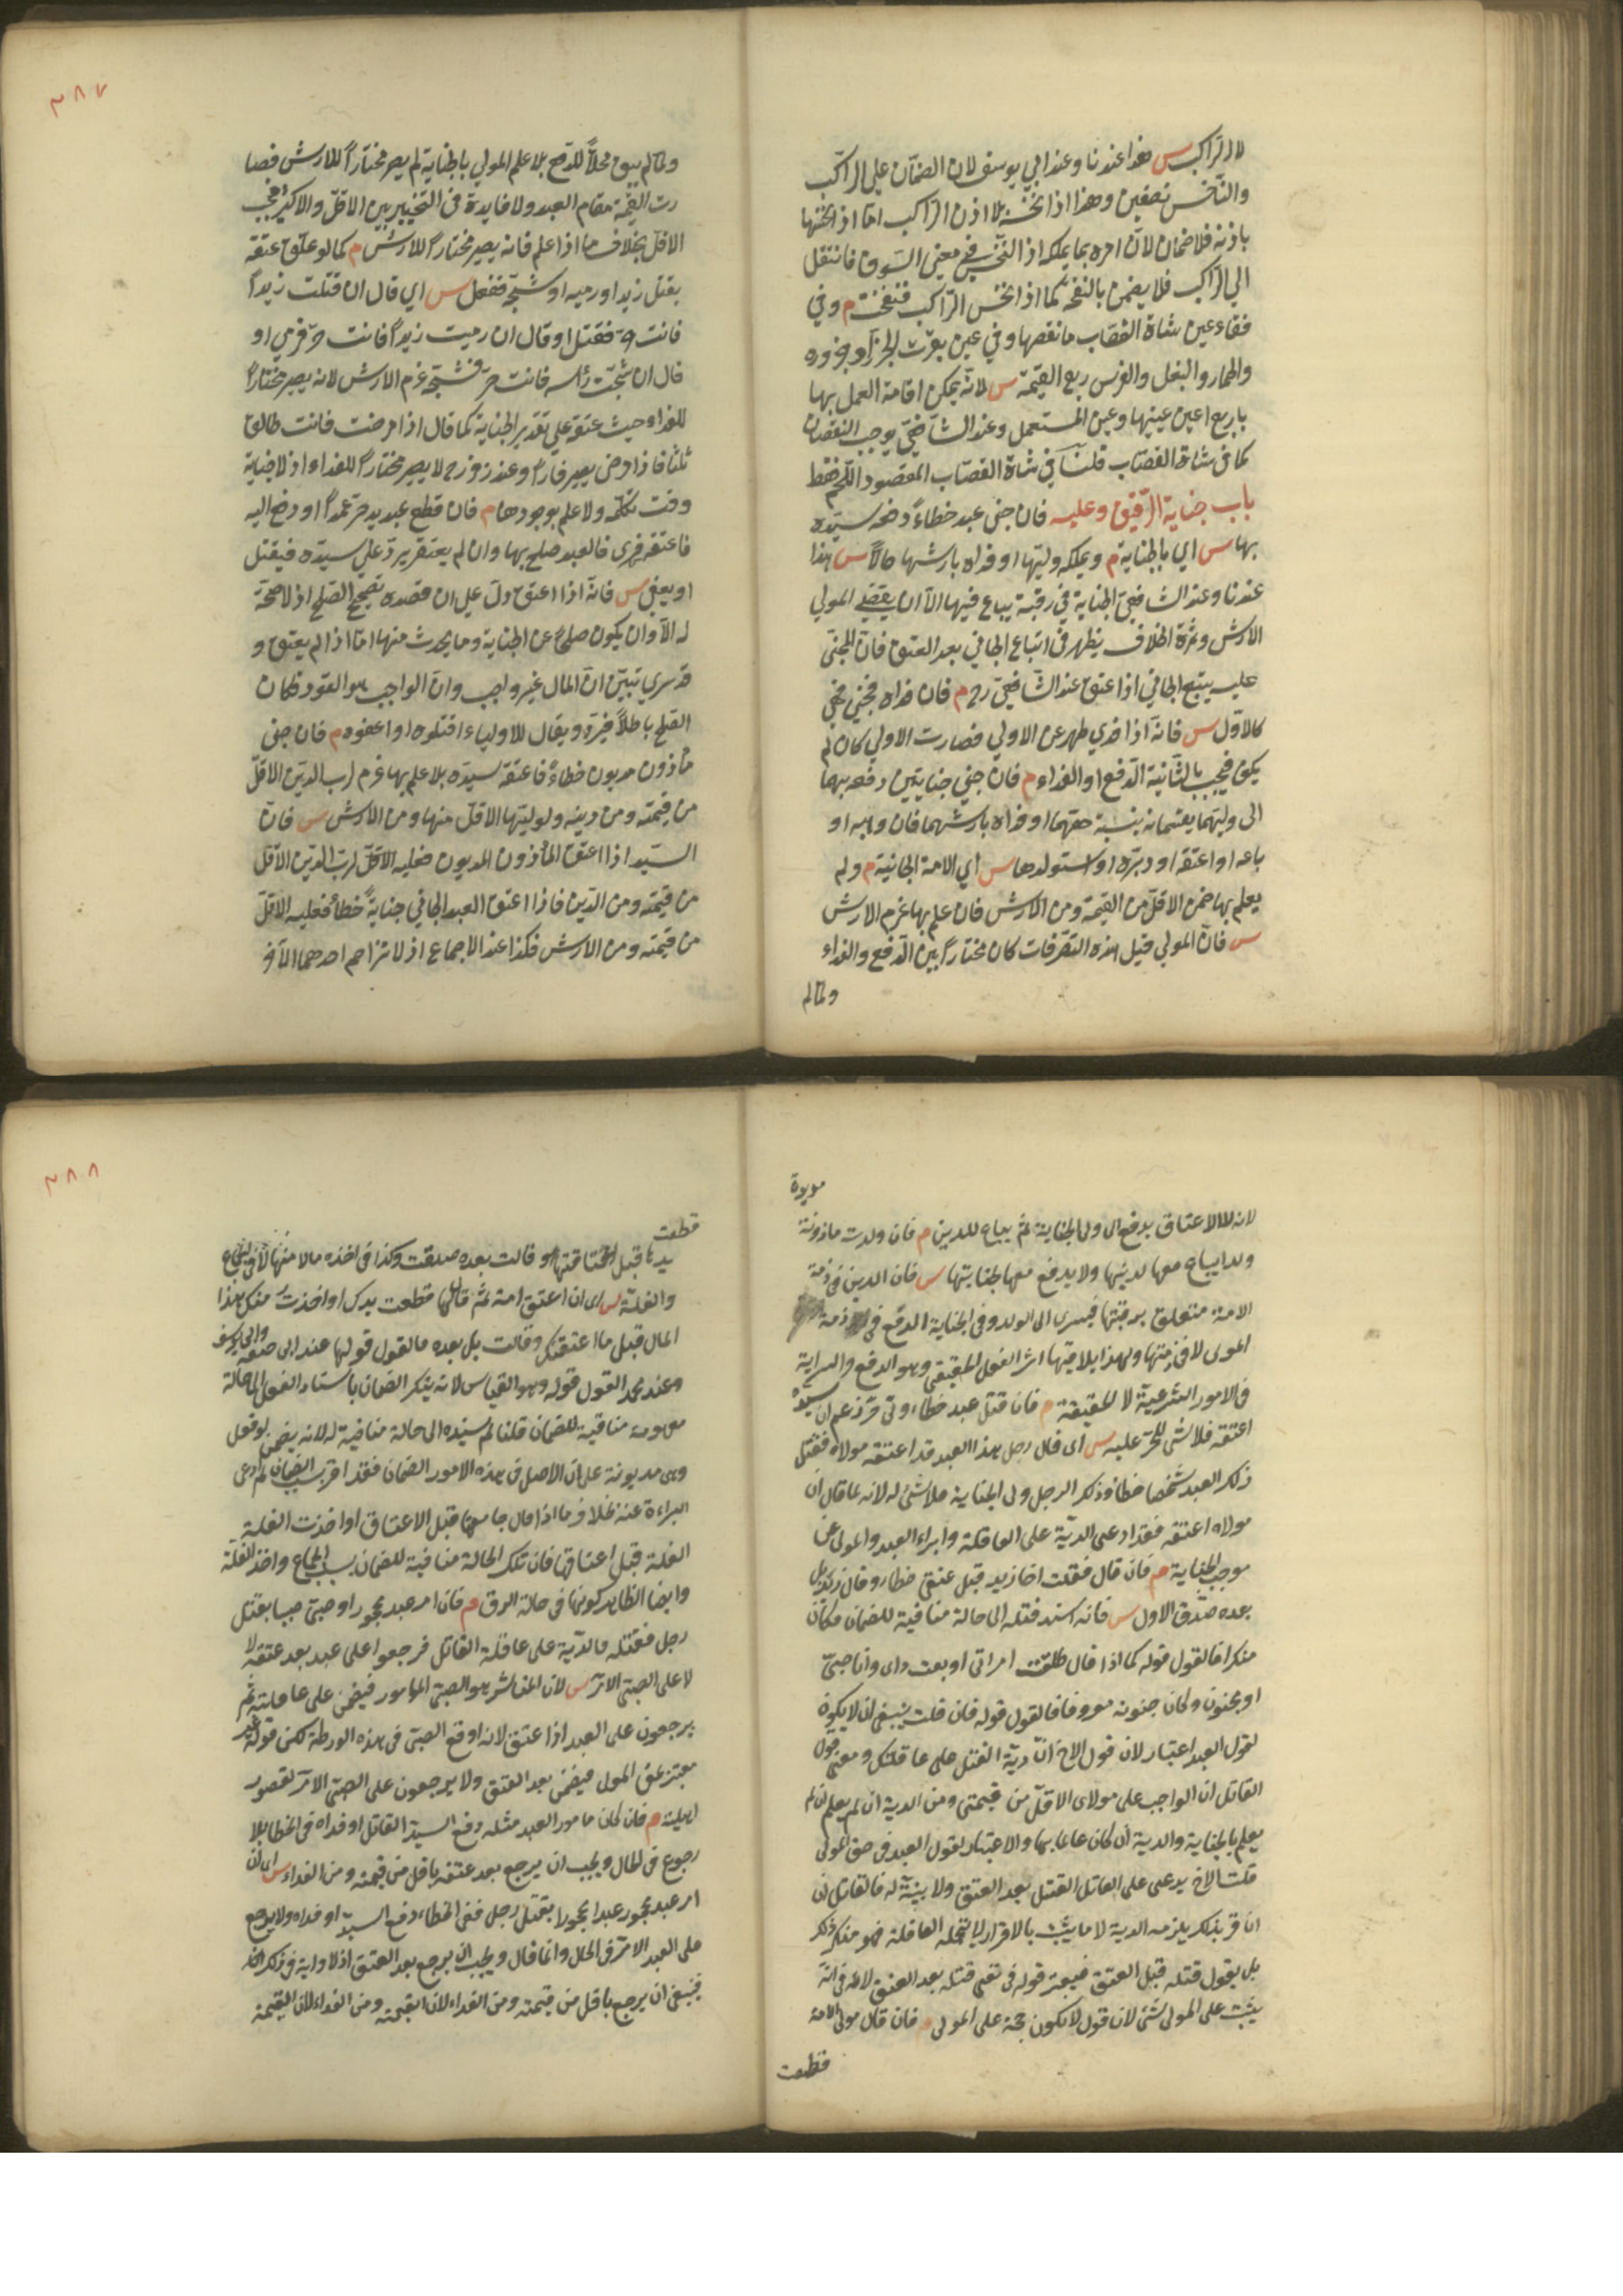 لا الراكب س هذا عندنا وعند ابي يوسف لان الضمان على الراكب
والناخس نصفين وهذا اذا نخس بلا اذن الراكب اما اذا نخسها
باذنه فلا ضمان لانه امره بما يملكه اذ النخس في معنى السوق فانتقل
الى الراكب فلا يضمن بالنفحة كما اذا نخس الراكب فنفخت م وفي
فقاء عين شاة القصاب ما نقصها وفي عين بقرة الجزار وجزوره
والحمار والبغل والفرس ربع القيمة س لانه يمكن اقامة العمل بها
باربع اعين عينيها وعين المستعمل وعند الشافعي يوجب النقصان
كما في شاة القصاب قلنا في شاة القصاب المقصود اللحم فقط
باب جناية الرقيق وعليه فان جنى عبد خطاء دفعه سيده
بها س اي بالجناية م ويملكه وليها او فداه بارشها حالا س هذا
عندنا وعند الشافعي الجناية في رقبته يباع فيها الا ان يقضي المولي
الارش وثمرة الخلاف يظهر في اتباع الجاني بعد العتق فان المجني
عليه يتبع الجاني اذا عتق عند الشافعي رح م فان فداه فجنى فهي
كالاول س فانه اذا فدي طهر عن الاولي فصارت الاولي كان لم
يكن فيجب بالثانية الدفع او الفداء م فان جنى جنايتين دفعه بهما
الى وليهما يقتسمانه بنسبة حقهما او فداه بارشهما فان وهبه او
باعه او اعتقه او دبره او استولدها س اي الامة الجانية م ولم
يعلم بها ضمن الاقل من القيمة ومن الارش فان علم بها غرم الارش
س فان المولي قبل هذه التصرفات كان مختارا بين الدفع والفداء
ولما لم
٣٨٧
ولما لم يبق محلا للدفع بلا علم المولي بالجناية لم يصر مختارا للارش فصا
رت القيمة مقام العبد ولا فايدة في التخيير بين الاقل والاكثر فيجب
الاقل بخلاف ما اذا علم فانه يصير مختارا للارش م كما لو علق عتقه
بقتل زيد او رميه او شجه ففعل س اي قال ان قتلت زيدا
فانت حر فقتل او قال ان رميت زيدا فانت حر فرمي او
قال ان شججت رأسه فانت حر فشجه غرم الارش لانه يصير مختارا
للفداء حيث عتقه علي تقدير الجناية كما قال اذا مرضت فانت طالق
ثلثا فاذا مرض يصير فارا وعند زفر رح لا يصير مختارا للفداء اذ لا جناية
وقت تكلمه ولا علم بوجودها م فان قطع عبد يد حر عمدا او دفع اليه
فاعتقه فسرى فالعبد صلح بها وان لم يعتقه يرد علي سيده فيقتل
او يعفى س فانه اذا اعتق دل علي ان قصده تصحيح الصلح اذ لا صحة
له الا وان يكون صلحا عن الجناية وما يحدث منها اما اذا لم يعتق و
قد سري تبين ان المال غير واجب وان الواجب هو القود فكان
الصلح باطلا فيرد ويقال للاولياء اقتلوه او اعفوه م فان جنى
مأذون مديون خطاء فاعتقه سيده بلا علم بها غرم لرب الدين الاقل
من قيمته ومن دينه ولوليها الاقل منها ومن الارش س فان
السيد اذا اعتق المأذون المديون فعليه الاقل لرب الدين الاقل
من قيمته ومن الدين فاذا اعتق العبد الجاني جناية خطأ فعليه الاقل
من قيمته ومن الارش فكذا عند الاجماع اذ لا تزاحم احدهما الآخر
لانه لولا الاعتاق يدفع الى ولي الجناية ثم يباع للدين م فان ولدت ماذونة
مديونة
ولدا يباع معها لدينها ولا يدفع معها لجنايتها س فان الدين في ذمة
الامة متعلق برقبتها فيسرى الى الولد وفي الجناية الدفع في ذمة
المولى لا في ذمتها ولهذا يلاقيها اثر الفعل الحقيقي وهو الدفع والسراية
في الامور الشرعية لا الحقيقة م فان قتل عبد خطاء ولي حر زعم ان سيده
اعتقه فلا شئ للحر عليه س اى قال رجل هذا العبد قد اعتقه مولاه فقتل
ذلك العبد شخصا خطا وذلك الرجل ولى الجناية فلا شئ له لانه لما قال ان
مولاه اعتقه فقد ادعى الدية على العاقلة وابراء العبد والمولى عن
موجب الجناية م فان قال قتلت اخا زيد قبل عتقى خطاء وقال زيد بل
بعده صدق الاول س فانه اسند قتله الى حالة منافية للضمان فكان
منكرا فالقول قوله كما اذا قال طلقت امراتى او بعت دارى وانا صبى
او مجنون وكان جنونه معروفا فالقول قوله فان قلت ينبغى ان لا يكون
لقول العبد اعتبار لان قول الاخ ان دية القتل على عاقلتك ومعنى قول
القاتل ان الواجب على مولاى الاقل من قيمتى ومن الدية ان لم يعلم ان لم
يعلم بالجناية والدية ان كان عالما بها ولا اعتبار لقول العبد في حق المولى
قلت الاخ يدعى على القاتل القتل بعد العتق ولا بينة له فالقاتل ان
اقر بذلك يلزمه الدية لا ما يثبت بالاقرار لا يتحمله العاقلة فهو منكر ذلك
بل يقول قتله قبل العتق فيعتبر قوله في نفى قتله بعد العتق لا في انه
يثبت على المولى شئ لان قول لا يكون حجة على المولى م فان قال مولى الامة
قطعت
٣٨٨
قطعت
يدها قبل اعتاقها وقالت بعده صدقت وكذا في اخذه مالا منها لا في الجماع
والغلة س اى ان اعتق امة ثم قال لها قطعت يدك او اخذت منك هذا
المال قبل ما اعتقتك وقالت بل بعده فالقول قولها عند ابى حنيفة وابى يوسف
وعند محمد القول قوله وهو القياس لانه ينكر الضمان باسناد الفعل الى حالة
معهودة منافية للضمان قلنا لم يسنده الى حالة منافية له لانه يضمن لو فعل
وهى مديونة على ان الاصل فى هذه الامور الضمان فقد اقر بسبب الضمان ثم ادعى
البراءة عنه بخلاف ما اذا قال جامعتها قبل الاعتاق او اخذت الغلة
الغلة قبل اعتاقها فان تلك الحالة منافية للضمان بسبب الجماع واخذ الغلة
وايضا الظاهر كونها في حالة الرق م فان امر عبد محجور او صبى صبيا بقتل
رجل فقتله فالدية على عاقلة القاتل فرجعوا على عبد بعد عتقه لا
لا على الصبى الآمر س لان المباشر هو الصبى المامور فيضمن على عاقلته ثم
يرجعون على العبد اذا عتق لانه اوقع الصبى فى هذه الورطة لكن قوله غير
معتبر لحق المولى فيضمن بعد العتق ولا يرجعون على الصبى الآمر لقصور
اهليته م فان كان مامور العبد مثله دفع السيد القاتل او فداه فى الخطا بلا
رجوع فى الحال ويجب ان يرجع بعد عتقه باقل من قيمته ومن الفداء س اى ان
امر عبد محجور عبدا محجورا بقتل رجل ففى الخطاء دفع السيد او فداه ولا يرجع
على العبد الآمر فى الحال وانما قال ويجب ان يرجع بعد العتق اذ لا رواية فى ذلك
فينبغى ان يرجع باقل من قيمته ومن الفداء لان القيمة ومن الفداء لان القيمة